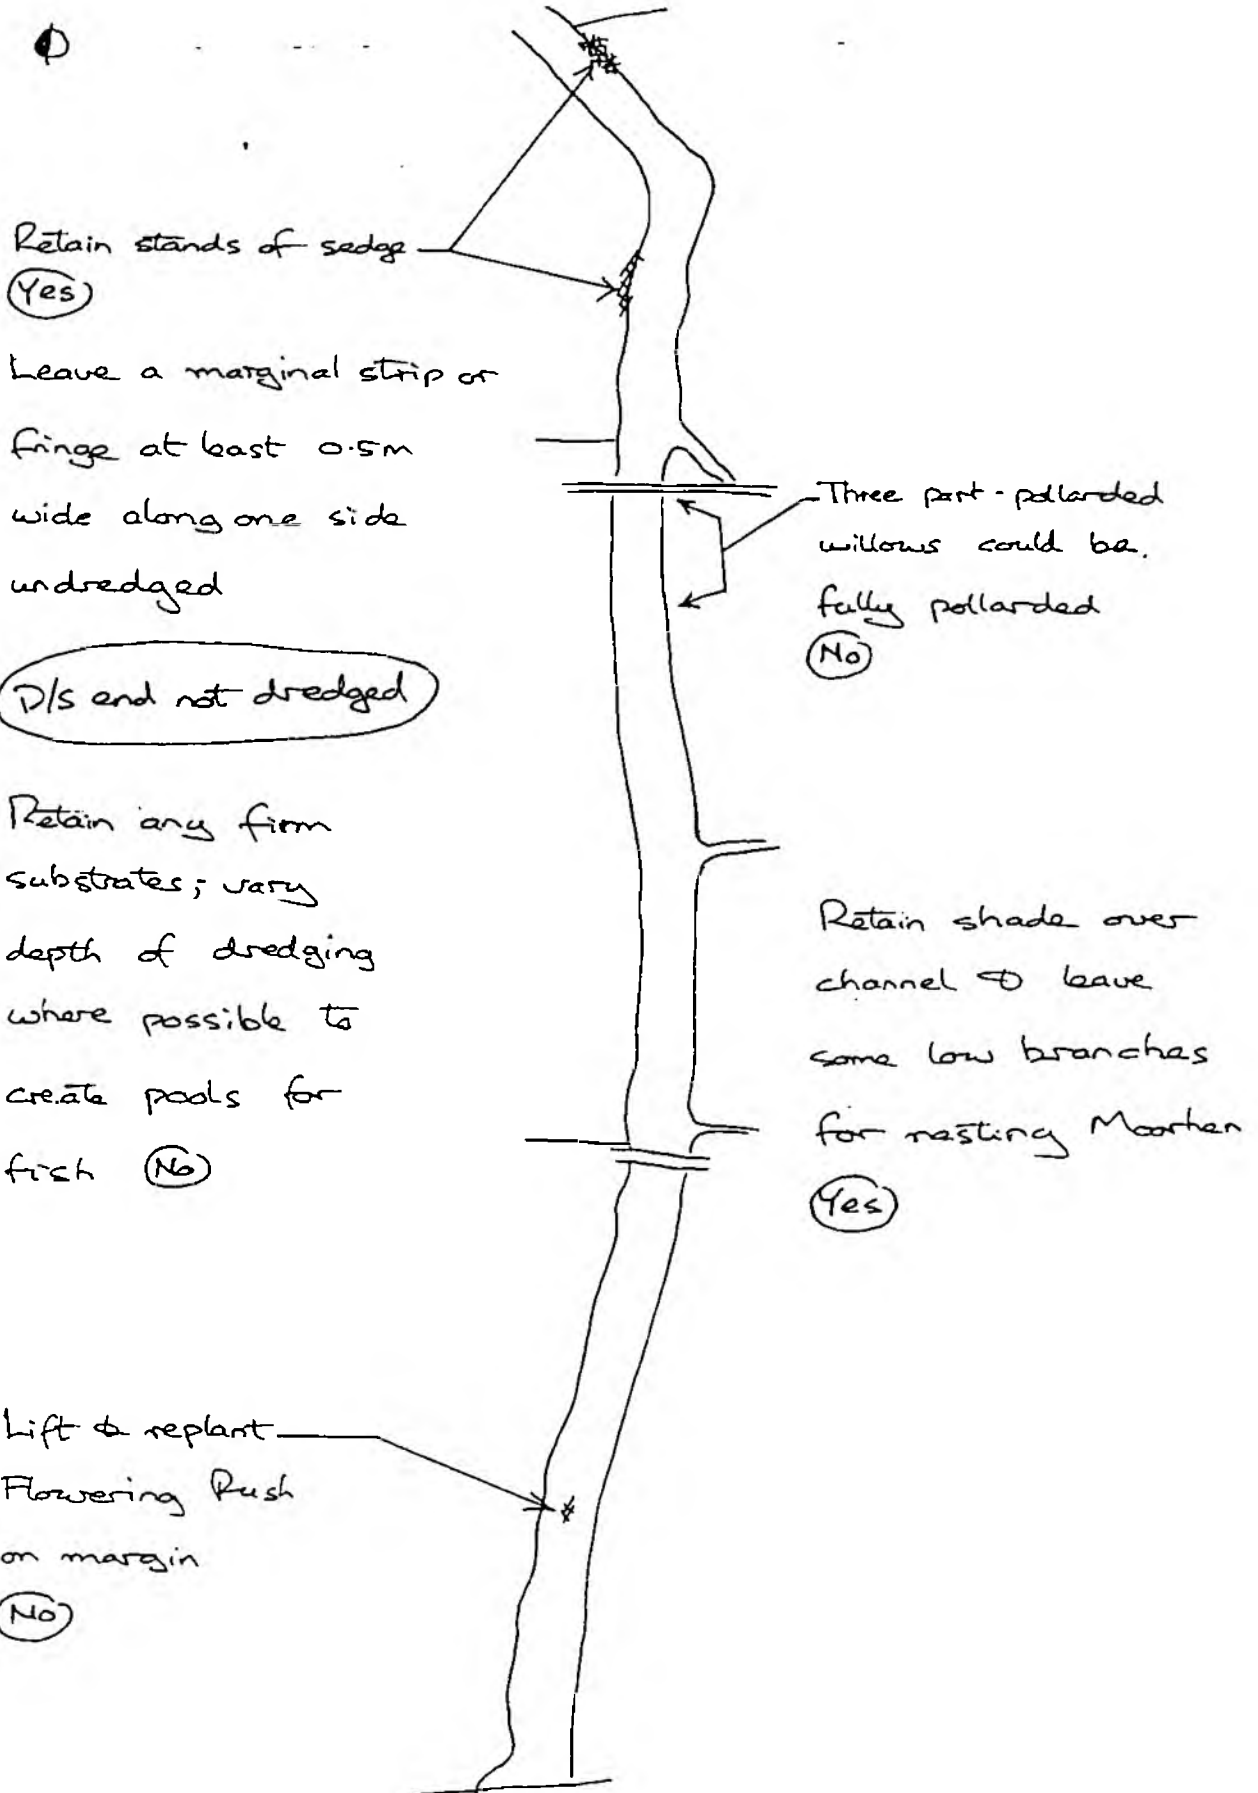 Retain stands of sedge
Yes
Leave a marginal strip or
fringe at least 0.5m
wide along one side
undredged
D/S end not dredged
Retain any firm
substrates; vary
depth of dredging
where possible to
create pools for
fish No
Lift & replant
Flowering Rush
on margin
No
Three part-pollarded
willows could be.
fully pollarded
No
Retain shade over
channel & leave
some low branches
for nesting Moorhen
Yes